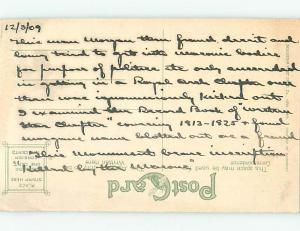 12/3/09
This man Morgan the fraud deceit and
long tried to get into masonic bodies
for purpose of politics etc only succeeded
in getting in a Royal Arch Chapter over
there was ignominiously kicked out
I examined the Record Book of "Western
Star Chapter" covering 1813-1825 & found
his name blotted out as a fraud
This Monument bears inscription
"Killed by the Masons"
Post Card
This space may be used for
Correspondence
PLACE
STAMP HERE